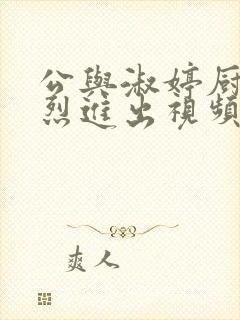 公與淑婷厨
烈進出視頻
爽人